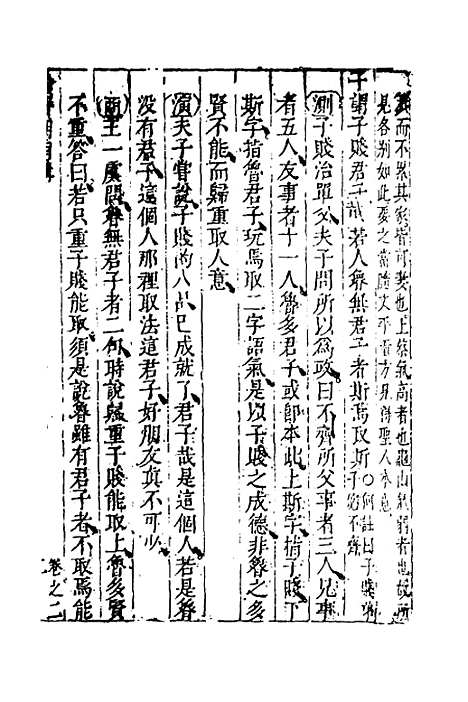 而不累其家皆可妻也上蔡氣高者也龜山氣弱者也故所
見各別如此要之當隨文平看方見得聖人本意
子謂子賤君子哉若人魯無君子者斯焉取斯〇何註曰子賤
子宓不齊
測子賤治單父夫子問所以為政曰不齊所父事者三人兄事
者五人友事者十一人魯多君子或卽本此上斯字指子賤下
斯字指魯君子玩焉取二字語氣是以子賤之成德非魯之多
賢不能而歸重取人意
演夫子嘗說子賤的人品已成就了君子哉是這個人若是魯
沒有君子這個人那裡取法這君子好朋友真不可少
商王一虞問魯無君子者二句時說騐重子賤能取上魯多賢
不重答曰若只重子賤能取須是說魯雖有君子者不取焉能
卷之二